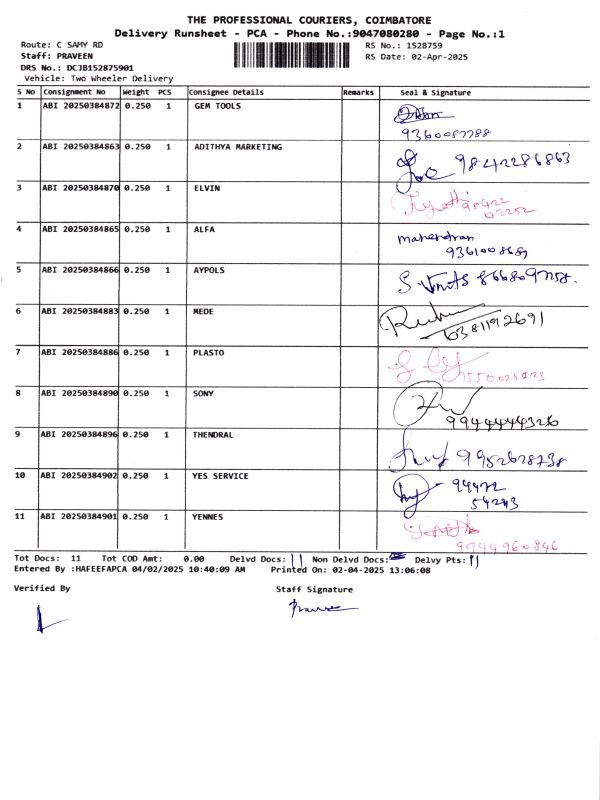 THE PROFESSIONAL COURIERS, COIMBATORE
Delivery Runsheet - PCA - Phone No.:9047080280 - Page No.:1
Route: C SAMY RD
RS No.: 1528759
Staff: PRAVEEN
RS Date: 02-Apr-2025
DRS No.: DCJB152875901
Vehicle: Two Wheeler Delivery
S No Consignment No Weight PCS Consignee Details Remarks Seal & Signature
1 ABI 20250384872 0.250 1 GEM TOOLS
9360087788
2 ABI 20250384863 0.250 1 ADITHYA MARKETING
9842286863
3 ABI 20250384870 0.250 1 ELVIN
98422
02252
4 ABI 20250384865 0.250 1 ALFA
mahendran
9361008689
5 ABI 20250384866 0.250 1 AYPOLS
6 ABI 20250384883 0.250 1 MEDE
6381192691
7 ABI 20250384886 0.250 1 PLASTO
8 ABI 20250384890 0.250 1 SONY
9944444326
9 ABI 20250384896 0.250 1 THENDRAL
9952628738
10 ABI 20250384902 0.250 1 YES SERVICE
94422
54243
11 ABI 20250384901 0.250 1 YENNES
9744960846
Tot Docs: 11 Tot COD Amt: 0.00 Delvd Docs: 11 Non Delvd Docs: Delvy Pts: 11
Entered By :HAFEEFAPCA 04/02/2025 10:40:09 AM Printed On: 02-04-2025 13:06:08
Verified By
Staff Signature